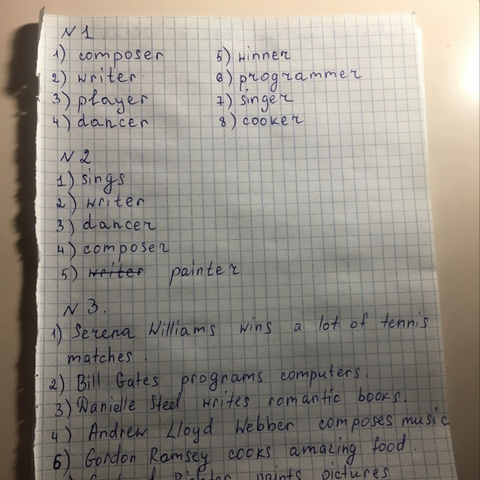 N 1
1) composer 5) winner
2) writer 6) programmer
3) player 7) singer
4) dancer 8) cooker
N 2.
1) sings
2) writer
3) dancer
4) composer
5) writer painter
N 3.
1) Serena Williams wins a lot of tennis
matches.
2) Bill Gates programs computers.
3) Danielle Steel writes romantic books.
4) Andrew Lloyd Webber composes music
5) Gordon Ramsey cooks amazing food.
paints pictures